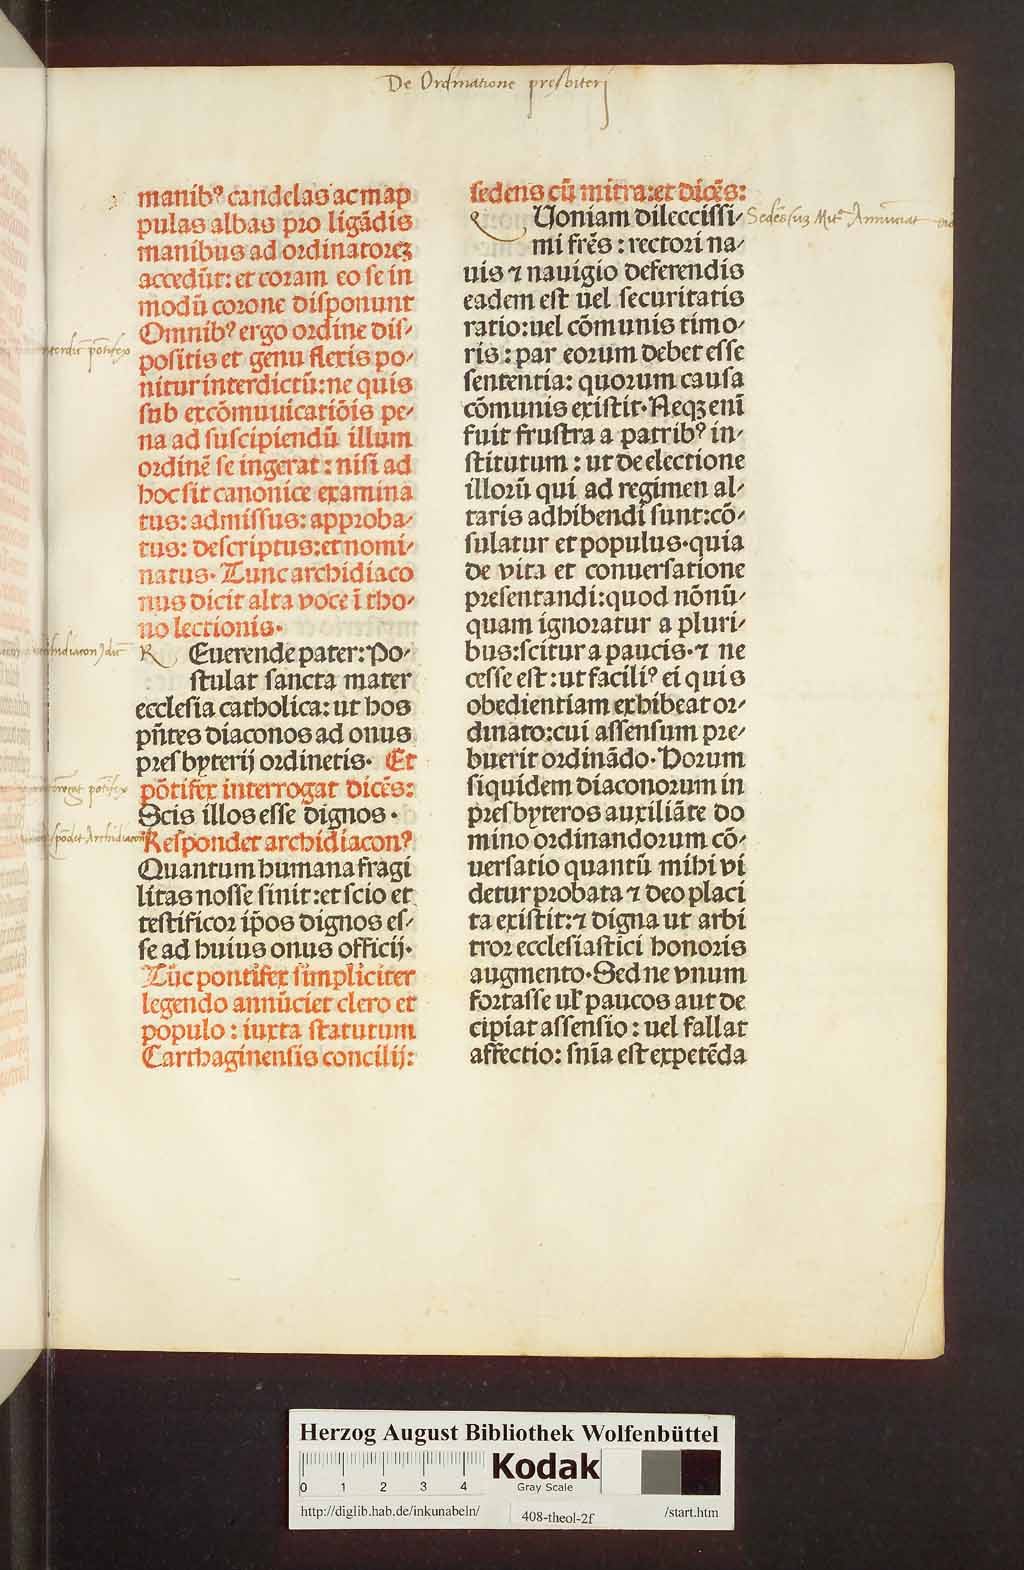 De Ordinatione presbiterj
manibꝰ candelas ac map
pulas albas pro ligādis
manibus ad ordinatorēꝫ
accedūt: et coram eo se in
modū corone disponunt
Omnibꝰ ergo ordine dis-
positis et genu flexis po-
nitur interdictū: ne quis
sub excōmuuicatiōis pe-
na ad suscipiendū illum
ordinē se ingerat: nisi ad
hoc sit canonice examina
tus: admissus: approba-
tus: descriptus: et nomi-
natus. Tunc archidiaco
nus dicit alta voce ī tho-
no lectionis.
R Euerende pater: Po-
stulat sancta mater
ecclesia catholica: ut hos
pn̄tes diaconos ad onus
presbyterij ordinetis. Et
pōtifex interrogat dicēs:
Scis illos esse dignos.
Respondet archidiaconꝰ
Quantum humana fragi
litas nosse sinit: et scio et
testificor ip̄os dignos es-
se ad huius onus officij.
Tūc pontifex simpliciter
legendo annūciet clero et
populo: iuxta statutum
Carthaginensis concilij:
interdic pōtifex
pōtifex
Archidiacon
sedens cū mitra: et dicēs:
Q Uoniam dileccissi-
mi frēs: rectori na-
uis ⁊ nauigio deferendis
eadem est uel securitatis
ratio: uel cōmunis timo-
ris: par eorum debet esse
sententia: quorum causa
cōmunis existit. Neqꝫ enī
fuit frustra a patribꝰ in-
stitutum: ut de electione
illorū qui ad regimen al-
taris adhibendi sunt: cō-
sulatur et populus. quia
de vita et conuersatione
presentandi: quod nōnū-
quam ignoratur a pluri-
bus: scitur a paucis. ⁊ ne
cesse est: ut faciliꝰ ei quis
obedientiam exhibeat or-
dinato: cui assensum pre-
buerit ordinādo. Horum
siquidem diaconorum in
presbyteros auxiliāte do
mino ordinandorum cō-
uersatio quantū mihi vi
detur probata ⁊ deo placi
ta existit: ⁊ digna ut arbi
tror ecclesiastici honoris
augmento. Sed ne vnum
fortasse uł paucos aut de
cipiat assensio: uel fallat
affectio: sn̄ia est expetēda
Annūciat
Herzog August Bibliothek Wolfenbüttel
0 1 2 3 4
Kodak
Gray Scale
http://diglib.hab.de/inkunabeln/ 408-theol-2f /start.htm